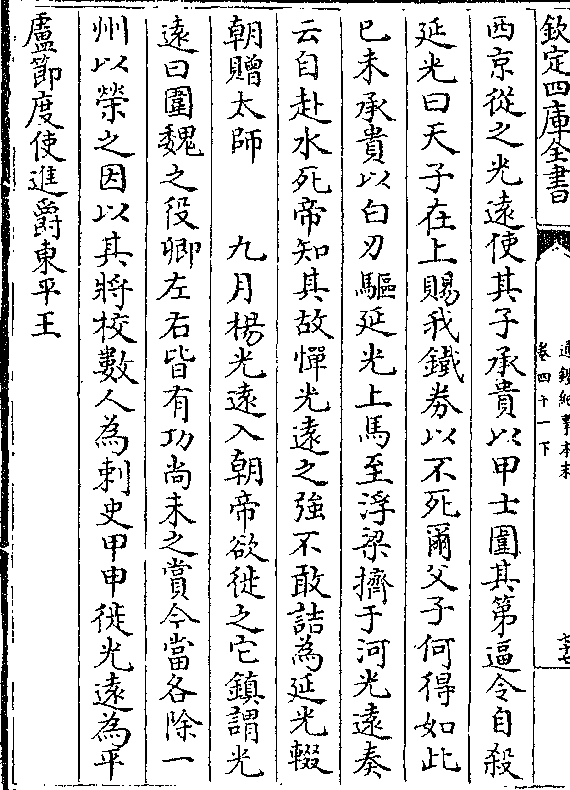 欽定四庫全書
通鑑紀事本末
卷四十一下
西京從之光遠使其子承貴以甲士圍其第逼令自殺
延光曰天子在上賜我鐵券以不死爾父子何得如此
已未承貴以白刃驅延光上馬至浮梁擠于河光遠奏
云自赴水死帝知其故憚光遠之強不敢詰為延光輟
朝贈太師　九月楊光遠入朝帝欲徙之它鎮謂光
遠曰圍魏之役卿左右皆有功尚未之賞今當各除一
州以榮之因以其將校數人為刺史甲申徙光遠為平
盧節度使進爵東平王